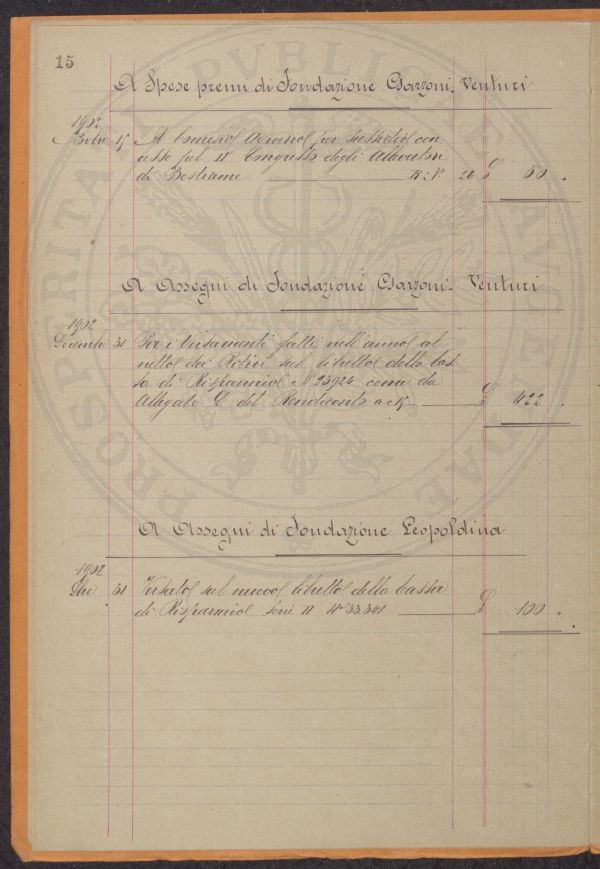 15
A Spese premi di Fondazione Garzoni-Venturi
1902
15 Al Comizio Agrario per sussidio con
cesso pel II° Congresso degli Allevatori
di Bestiame R: N° 26 £ 50 .
A Assegni di Fondazione Garzoni-Venturi
1902
Dicembre 31 Per i versamenti fatti nell'anno al
netto dei Ritiri sul libretto della Cas
sa di Risparmio N° 23924 come da
Allegato del Rendiconto a c 15 £ 422 .
A Assegni di Fondazione Leopoldina
1902
Dbre 31 Versato sul nuovo libretto della Cassa
di Risparmio Serie II N° 33.341 £ 100 .
PROSPERITATI PVBLICAE AVGENDAE